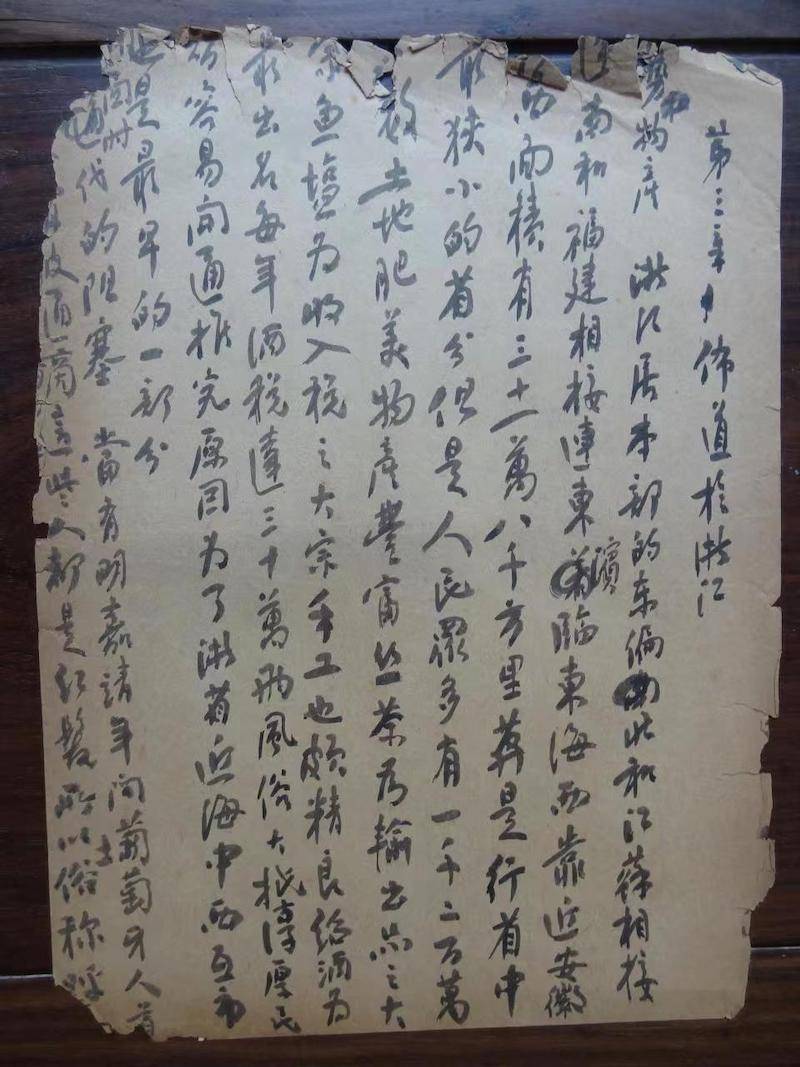 第三章 佈道於浙江
勢物产 浙江居本部的东偏北和江蘇相接
南和福建相接連東濱臨東海西靠近安徽
西面積有三十一萬八千方里算是行省中
最狭小的省分但是人民眾多有一千二百萬
数土地肥美物產豐富丝茶为輸出品之大
宗魚塩为收入税之大宗手工也颇精良绍酒为
最出名每年酒税達三十萬兩風俗大抵淳厚民
容易開通推究原因为了浙省近海中西互市
也是最早的一部分
代的阻塞 當有明嘉請年间葡萄牙人首
通商這些人都是红髮所以俗称呼